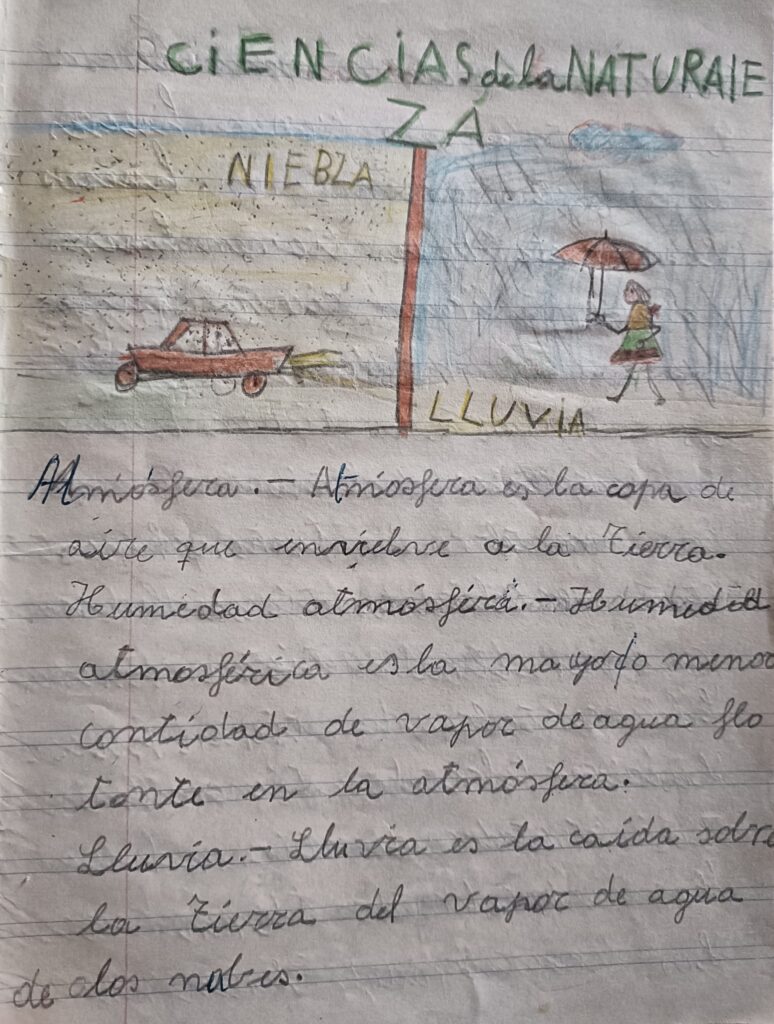 CIENCIAS de la NATURALE
ZA
NIEBLA
LLUVIA
Atmósfera.- Atmosfera es la capa de
aire que envuelve a la Tierra.
Humedad atmósférica.- Humedad
atmosférica es la mayor o menor
contidad de vapor de agua flo
tante en la atmósfera.
Lluvia.- Lluvia es la caída sobre
la Tierra del vapor de agua
de